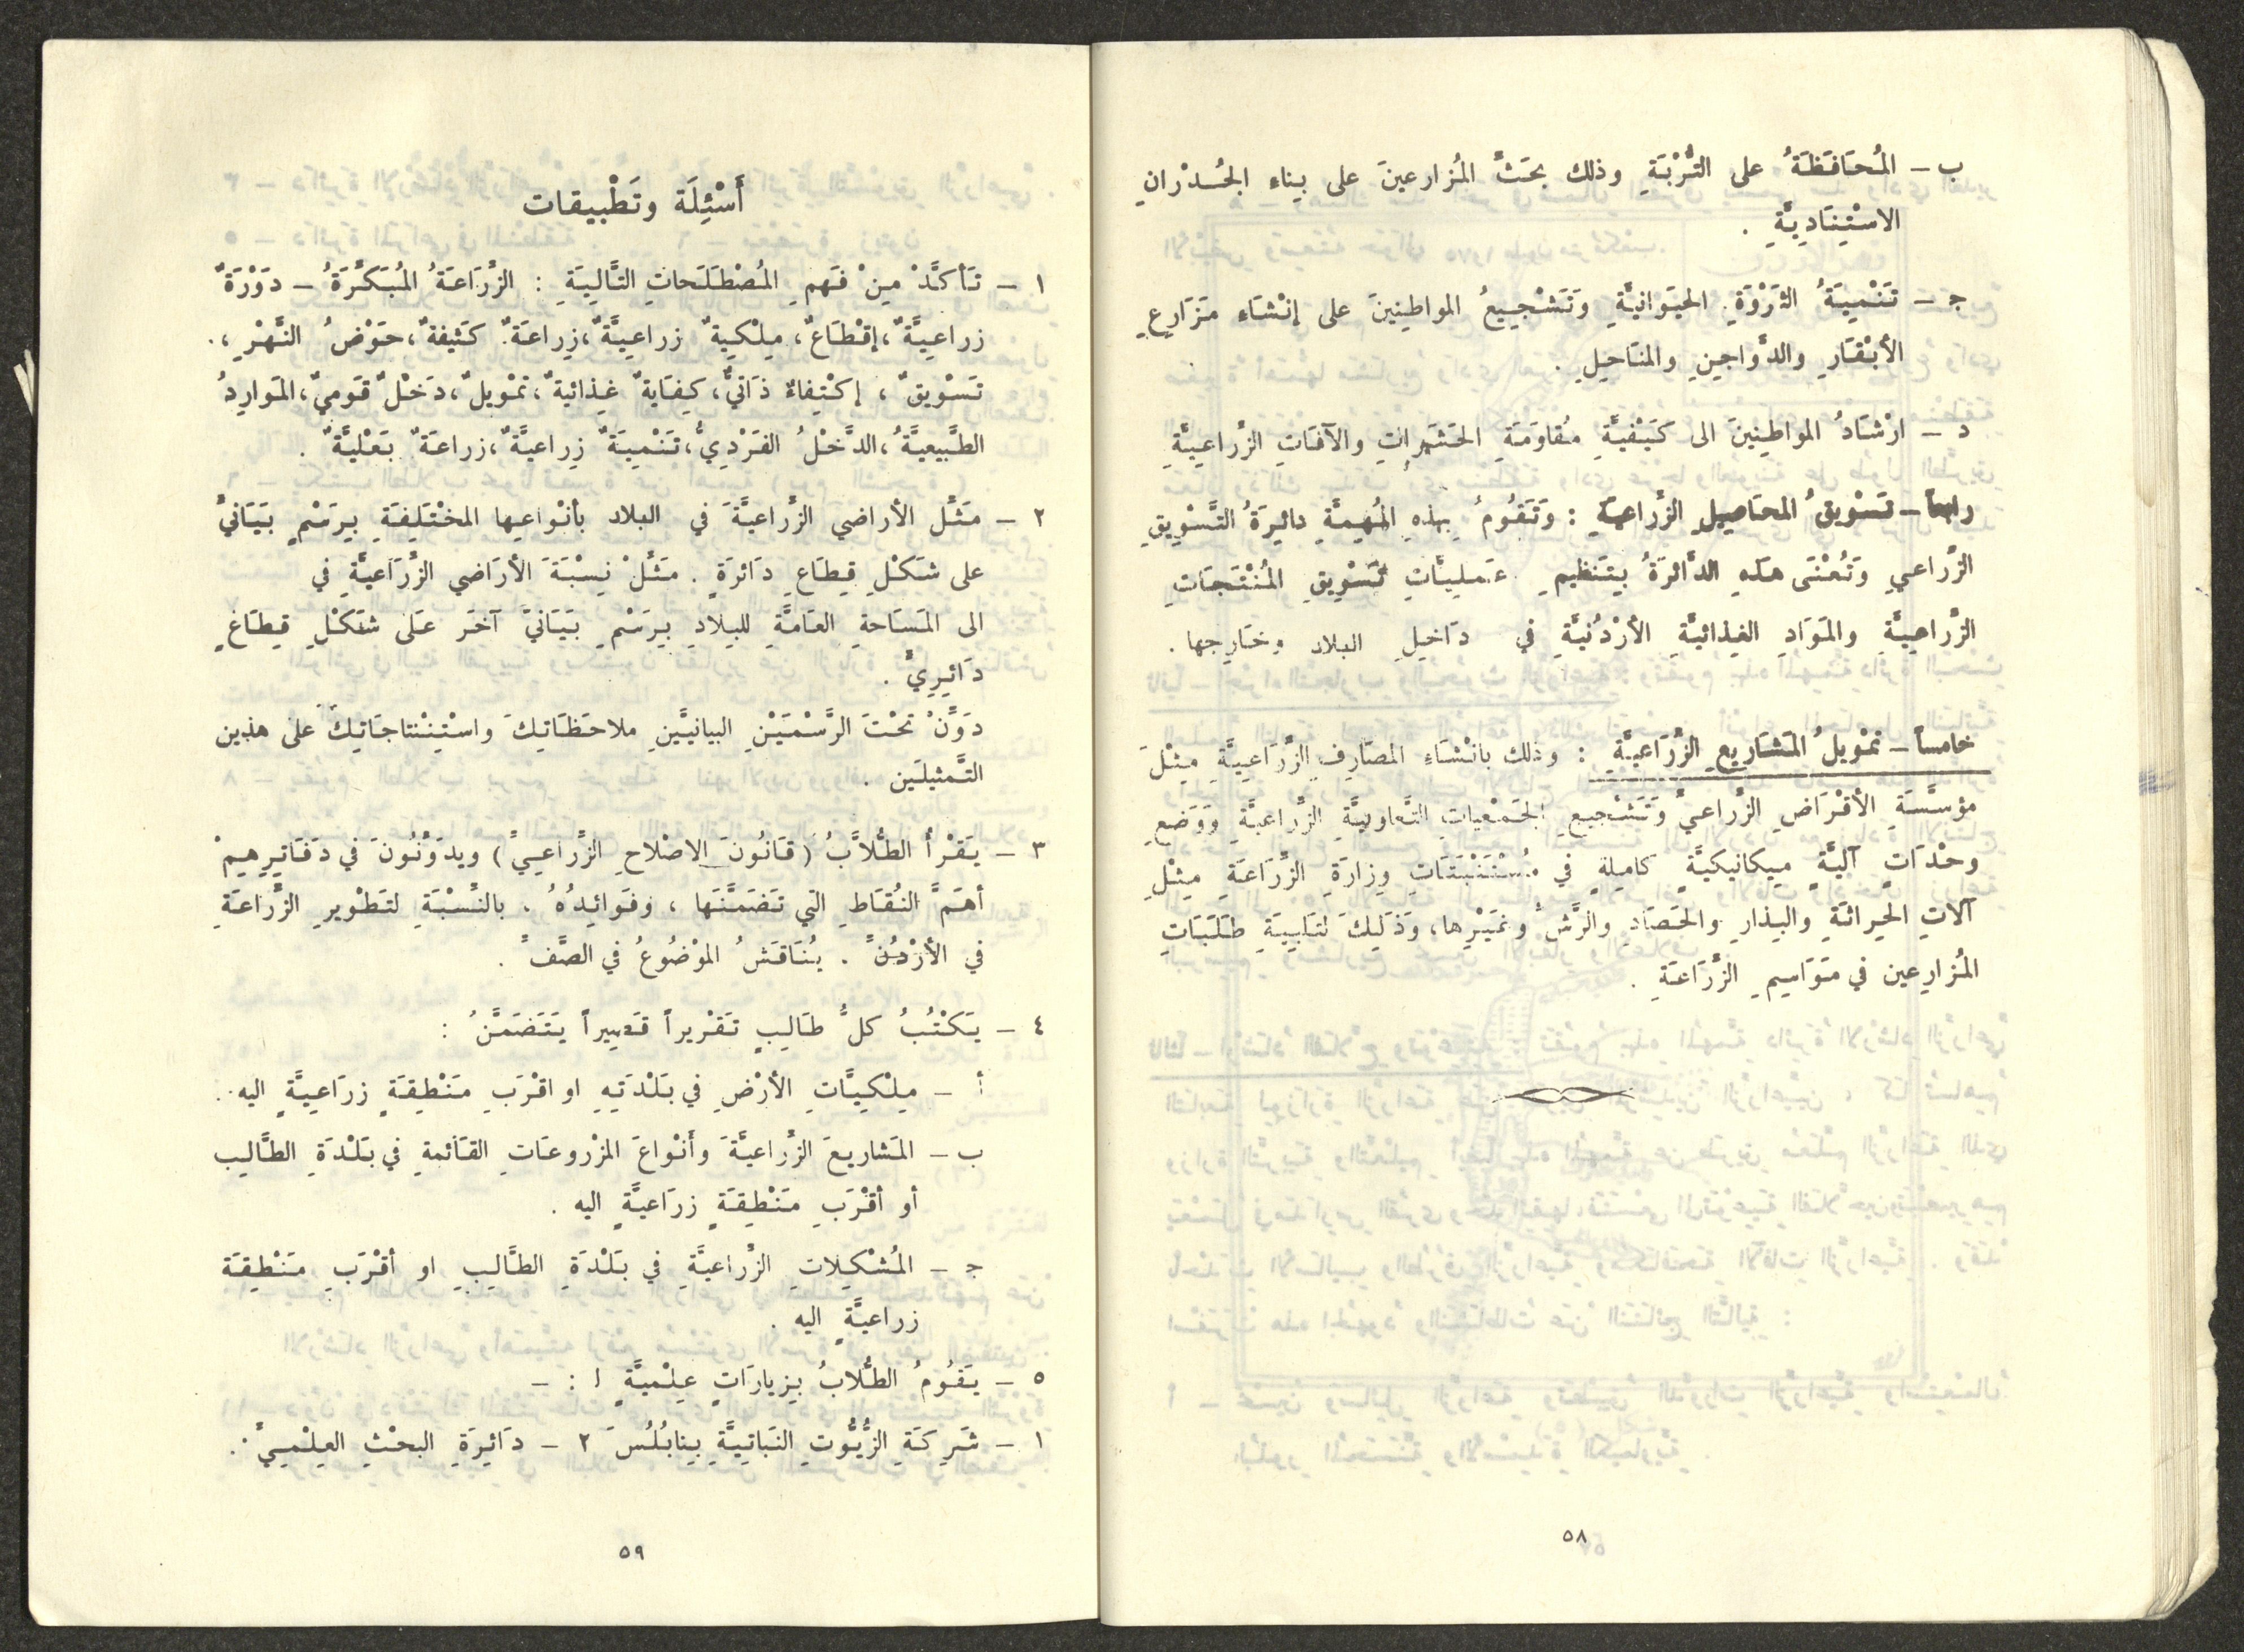 ب – المُحَافَظَةُ على التُّرْبَةِ وذلك بحَثِّ المُزارعينَ على بِناءِ الجُدْرانِ
الاسْتِنَادِيَّةِ .
ج – تَنْمِيَةُ الثَرْوَةِ الحَيَوانيَّةِ وَتَشْجِيعُ المواطِنينَ على إنْشَاءِ مَزَارِعِ
الأبْقَارِ والدَّواجِنِ والمنَاحِلِ .
د – ارْشَادُ المواطِنِينَ الى كَيْفيَّةِ مُقاوَمَةِ الحَشَراتِ والآفَاتِ الزِّراعِيَّةِ
رابعاً – تَسْوِيقُ المحَاصِيلِ الزِّراعيّةِ : وَتَقُومُ بِهذِهِ المُهِمَّةِ دائِرَةُ التَّسْوِيقِ
الزِّراعيِ وَتُعْنَى هذِهِ الدَّائرَةُ بِتَنظيمِ عَمليَّاتِ تَسْوِيقِ المُنْتَجَاتِ
الزِّراعِيَّةِ والمَوَادِ الغِذائيَّةِ الأرْدُنيَّةِ في دَاخِلِ البلاد وخَارِجِها .
خامساً – تمْوِيلُ المَشَارِيعِ الزِّرَاعيَّةِ : وذلك بانْشَاءِ المصَارِفِ الزِّرَاعِيَّةِ مِثْلَ
مؤسَّسَةِ الأقْرَاضِ الزِّراعيِّ وَتَشْجِيعِ الجَمْعِياتِ التَّعاونِيَّةِ الزِّراعيَّةِ وَوَضعِ
وحْدَاتٍ آليَّةٍ مِيكانِيكيَّةٍ كامِلةٍ في مُسْتَنْبَتَاتِ وِزارَةِ الزِّرَاعَةِ مِثْلِ
آلاتِ الحِراثَةِ والبِذارِ والحَصَادِ والرَّشِّ وغَيْرِها، وَذَلِكَ لتَلبِيَةِ طَلَبَاتِ
المُزارِعين في مَوَاسِمِ الزِّرَاعَةِ .
٥٨
أَسْئِلَة وتَطْبيقات
١ – تَأكَّدْ مِنْ فَهمِ المُصْطَلَحاتِ التَّالِيَةِ : الزِّرَاعَةُ المُبَكِّرَةُ – دَوْرَةٌ
زراعِيَّةٌ ، إقْطَاعٌ ، مِلْكيةٌ زراعِيَّةٌ ، زِراعَةٌ كَثيفةٌ ، حَوْضُ النَّهْرِ ،
تَسْوِيقٌ ، إكْتِفاءٌ ذَاتيٌّ ، كِفَايةٌ غِذائيةٌ ، تمْويلٌ ، دَخْلٌ قَوميٌ ، المَوارِدُ
الطَّبيعيَّةُ ، الدَّخْلُ الفَرْدِيُّ ، تَنْمِيَةٌ زِراعيَّةٌ ، زراعَةٌ بَعْليَّةٌ .
٢ – مَثِّل الأراضي الزِّراعيَّةَ في البلاد بأنْواعِها المخْتَلِفَةِ بِرَسْمٍ بَيَانيٍّ
على شَكْلِ قِطَاعِ دَائرَةٍ . مَثِّلْ نِسْبَةَ الأرَاضي الزِّرَاعيَّةِ في
الى المَسَاحةِ العَامَّةِ للبِلادِ بِرَسْمٍ بَيَانيٍّ آخَر عَلى شَكْلِ قِطَاعٍ
دَائِرِيٍّ .
دَوِّنْ تحْتَ الرَّسْمَيْنِ البيانيَّينِ ملاحَظَاتِكَ واسْتِنْتاجَاتِكَ عَلى هذين
التَّمثيلَين .
٣ – يَقْرأ الطُّلاَّبُ ( قَانُونَ الاصْلاحِ الزِّرَاعِيِّ ) ويدَوِّنُونَ في دَفَاتِرِهِمْ
أهَمَّ النُقَاطِ التي تَضَمَّنَهَا ، وفَوائِدُهُ ، بالنِّسْبَةِ لتَطْوِيرِ الزِّراعَةِ
في الأرْدُنِّ . يُنَاقَشُ الموْضُوعُ في الصَّفِّ .
٤ – يَكْتُبُ كلُّ طَالِبٍ تَقْريراً قَصِيراً يَتَضَمَّنُ :
أ – مِلْكِيَّاتِ الأرْضِ في بَلْدَتِهِ او اقْرَبِ مَنْطِقَةٍ زرَاعِيَّةٍ اليه .
ب – المَشاريعَ الزِّراعيَّةَ وأَنْواعَ المزْروعَاتِ القَائمةِ في بَلْدَةِ الطَّالِب
أو أقْرَبِ مَنْطِقَةٍ زرَاعيَّةٍ اليه .
ج – المُشْكِلاتِ الزِّراعيَّةِ في بَلْدَةِ الطَّالِبِ او أقْرَبِ مَنْطِقَة
زراعيَّةٍ اليه .
٥ – يَقُومُ الطُّلابُ بِزيارَاتٍ عِلْميَّةٍ ا : –
١ – شَرِكَةِ الزُّيُوت النَباتِيَّةِ بِنابُلُسَ ٢ – دَائِرَةِ البحْثِ العِلْمِيِّ .
٥٩